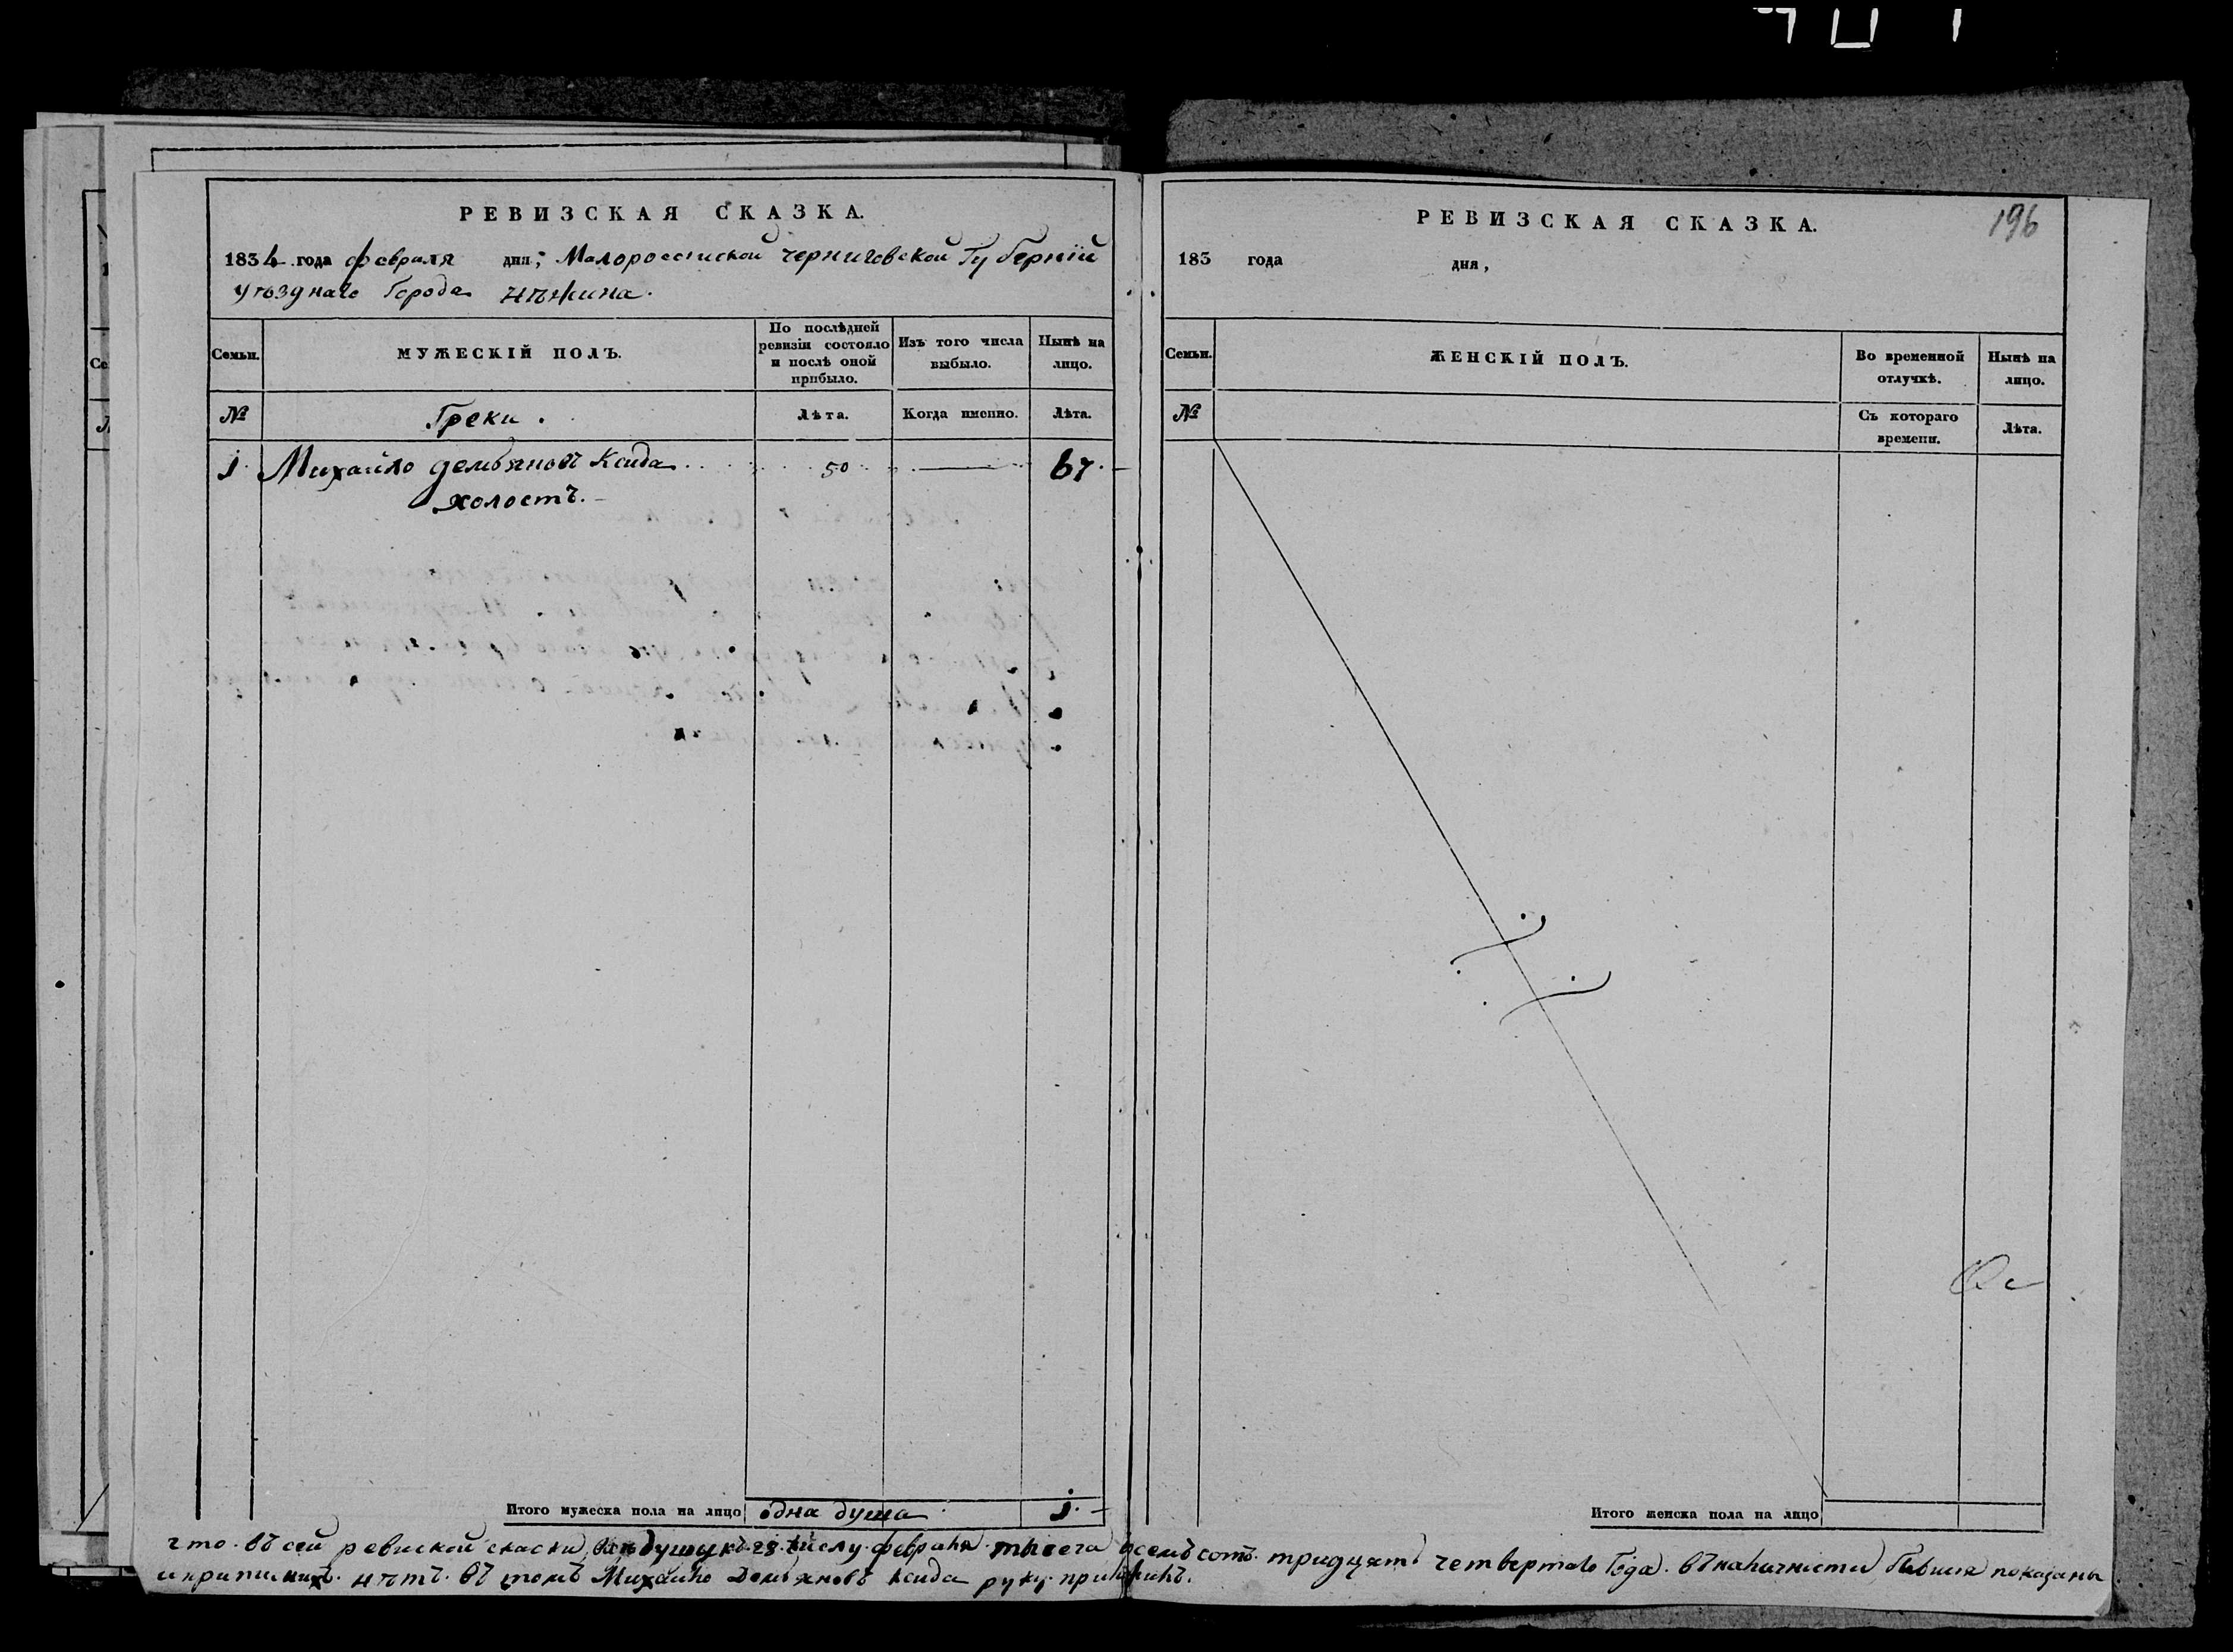 РЕВИЗСКАЯ СКАЗКА.
1834 года февраля дня; Малороссииской черниговской Губерніи
уѣзднаго Города нѣжина.
Семьи.
МУЖЕСКІЙ ПОЛЪ.
По послѣдней ревизіи состояло и послѣ оной прибыло.
Изъ того числа выбыло.
Нынѣ на лицо.
№
Греки.
Лѣта.
Когда именно.
Лѣта.
1 Михайло демьяновъ Ксида 50 67.
холостъ.
Итого мужеска пола на лицо одна душа 1.
РЕВИЗСКАЯ СКАЗКА.
196
183 года дня,
Семьи.
ЖЕНСКІЙ ПОЛЪ.
Во временной отлучкѣ.
Нынѣ на лицо.
№
Съ котораго времени.
Лѣта.
Итого женска пола на лицо
что въ сей ревиской скаски душу числу февраля тысеча всемъ сотъ тридцять четвертаго Года. въ наличности бывшия показаны
и прописныхъ нѣтъ. въ томъ Михайло Демьяновъ Ксида руку приложилъ.